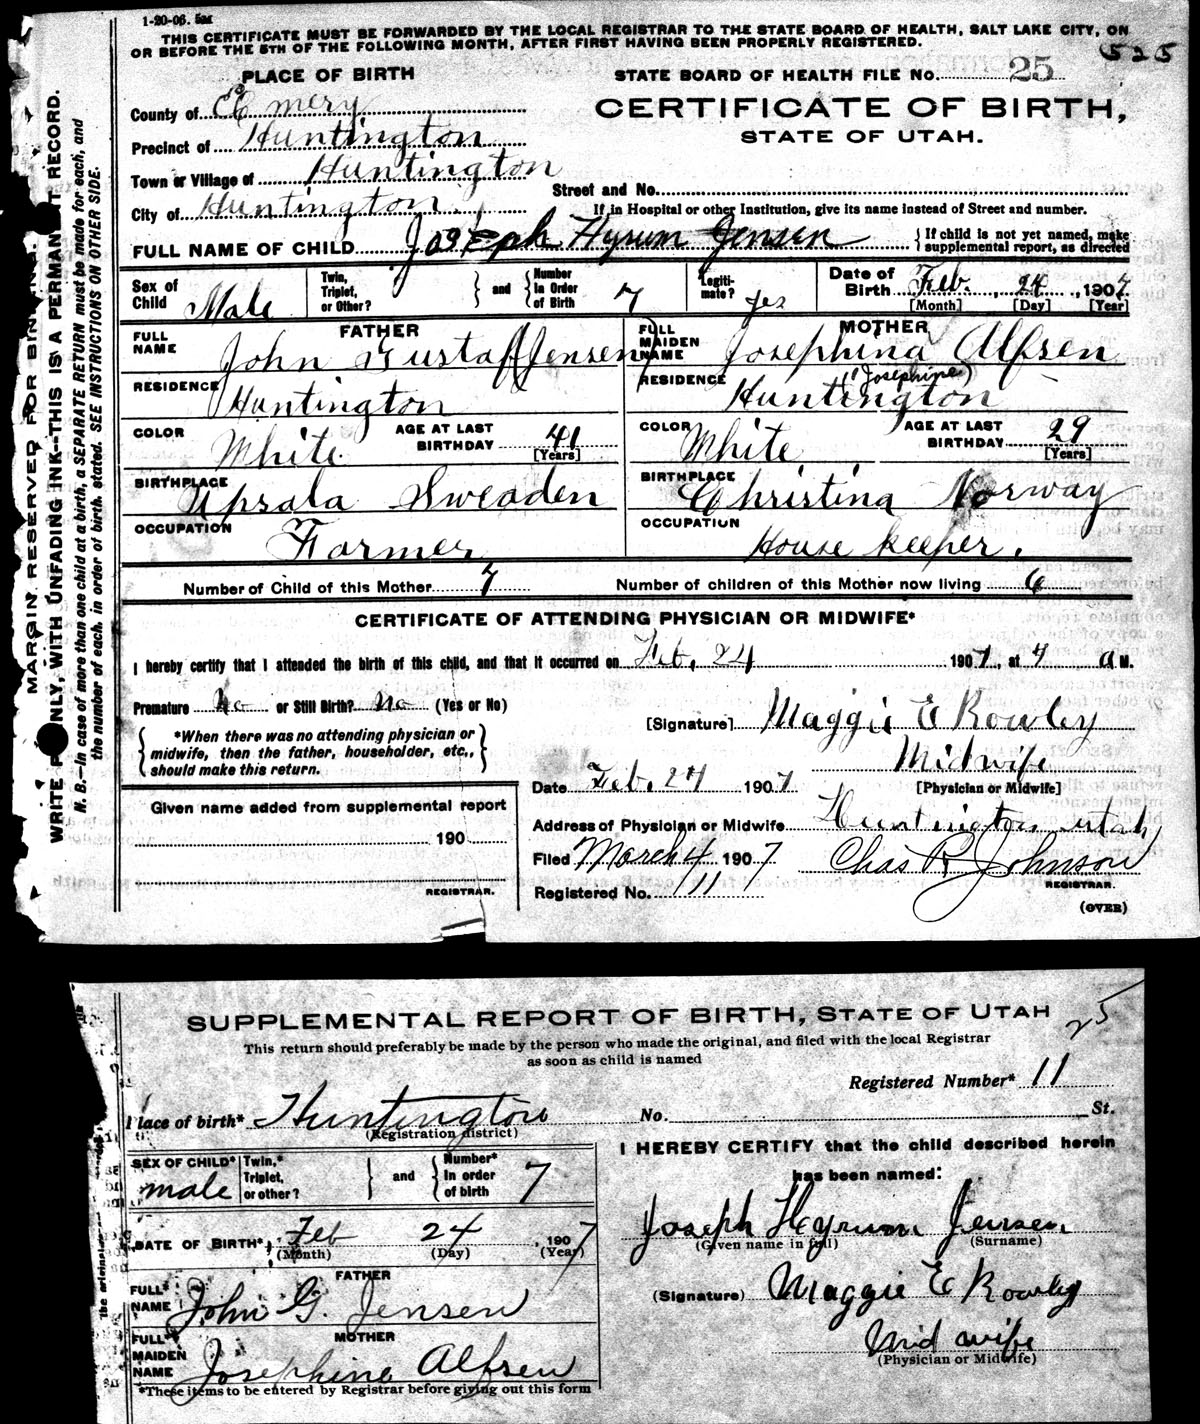 1-20-06. 5M
THIS CERTIFICATE MUST BE FORWARDED BY THE LOCAL REGISTRAR TO THE STATE BOARD OF HEALTH, SALT LAKE CITY, ON
OR BEFORE THE 5TH OF THE FOLLOWING MONTH, AFTER FIRST HAVING BEEN PROPERLY REGISTERED.
525
PLACE OF BIRTH
STATE BOARD OF HEALTH FILE No. 25
County of Emery
CERTIFICATE OF BIRTH,
Precinct of Huntington
STATE OF UTAH.
Town or Village of Huntington
Street and No.
City of Huntington
If in Hospital or other Institution, give its name instead of Street and number.
FULL NAME OF CHILD Joseph Hyrum Jensen
If child is not yet named, make supplemental report, as directed
Sex of Child Male
Twin, Triplet, or Other? and Number In Order of Birth 7
Legitimate? yes
Date of Birth Feb. 24, 1907
[Month] [Day] [Year]
FATHER
MOTHER
FULL NAME John Gustaf Jensen
FULL MAIDEN NAME Josephina Alfsen
(Josephine)
RESIDENCE Huntington
RESIDENCE Huntington
COLOR White AGE AT LAST BIRTHDAY 41 [Years]
COLOR White AGE AT LAST BIRTHDAY 29 [Years]
BIRTHPLACE Upsala Sweaden
BIRTHPLACE Christina Norway
OCCUPATION Farmer
OCCUPATION House keeper.
Number of Child of this Mother 7
Number of children of this Mother now living 6
CERTIFICATE OF ATTENDING PHYSICIAN OR MIDWIFE*
I hereby certify that I attended the birth of this child, and that it occurred on Feb. 24 1907, at 4 a M.
Premature No or Still Birth? No (Yes or No)
[Signature] Maggie E Rowley
*When there was no attending physician or
midwife, then the father, householder, etc.,
should make this return.
Midwife
[Physician or Midwife]
Date Feb. 24 1907
Given name added from supplemental report
190
REGISTRAR.
Address of Physician or Midwife Huntington utah
Filed March 4 1907 Chas R Johnson
REGISTRAR.
Registered No. 11
(OVER)
MARGIN RESERVED FOR BINDING.
WRITE PLAINLY, WITH UNFADING INK--THIS IS A PERMANENT RECORD.
N. B.—In case of more than one child at a birth, a SEPARATE RETURN must be made for each, and
the number of each, in order of birth, stated. SEE INSTRUCTIONS ON OTHER SIDE.
SUPPLEMENTAL REPORT OF BIRTH, STATE OF UTAH
25
This return should preferably be made by the person who made the original, and filed with the local Registrar
as soon as child is named
Registered Number* 11
Place of birth* Huntington No. St.
(Registration district)
SEX OF CHILD* male
Twin,* Triplet, or other? and Number* In order of birth 7
I HEREBY CERTIFY that the child described herein
has been named:
DATE OF BIRTH* Feb 24, 1907
(Month) (Day) (Year)
Joseph Hyrum Jensen
(Given name in full) (Surname)
FATHER
FULL* NAME John G. Jensen
(Signature) Maggie E Rowley
MOTHER
FULL* MAIDEN NAME Josephine Alfsen
Mid wife
(Physician or Midwife)
*These items to be entered by Registrar before giving out this form